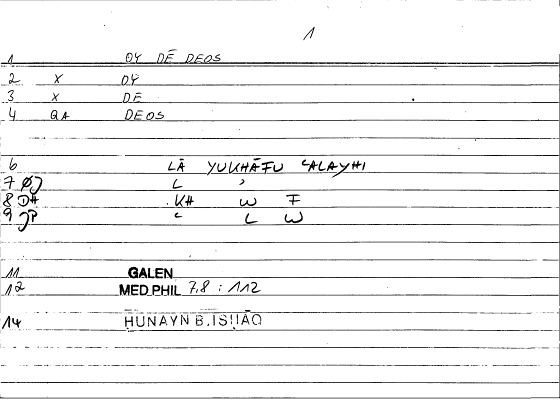 1
1 OY DĒ DEOS
2 X OY
3 X DĒ
4 QA DEOS
6 LĀ YUKHĀFU ʿALAYHI
7 ØJ L ʾ
8 DH KH W F
9 JP ʿ L W
11 GALEN
12 MED.PHIL 7,8 : 112
14 ḤUNAYN B. ISḤĀQ